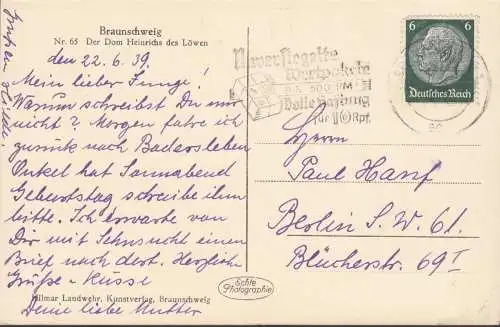 Braunschweig
Nr. 65 Der Dom Heinrichs des Löwen
den 22.6.39.
Mein lieber Junge!
Warum schreibst Du mir
nicht? Morgen fahre ich
zurück nach Badersleben
Onkel hat Sonnabend
Geburtstag schreibe ihm
bitte. Ich erwarte von
Dir mit Sehnsucht einen
Brief nach dort. Herzliche
Grüße + Küsse
Hilmar Landwehr, Kunstverlag, Braunschweig
Deine liebe Mutter
Unversiegelte
Wertpakete
bis 500 RM
Volle Haftung
für 10 Rpf.
6 6
Deutsches Reich
Herrn
Paul Hanf
Berlin S.W. 61.
Blücherstr. 69 I
Echte
Photographie